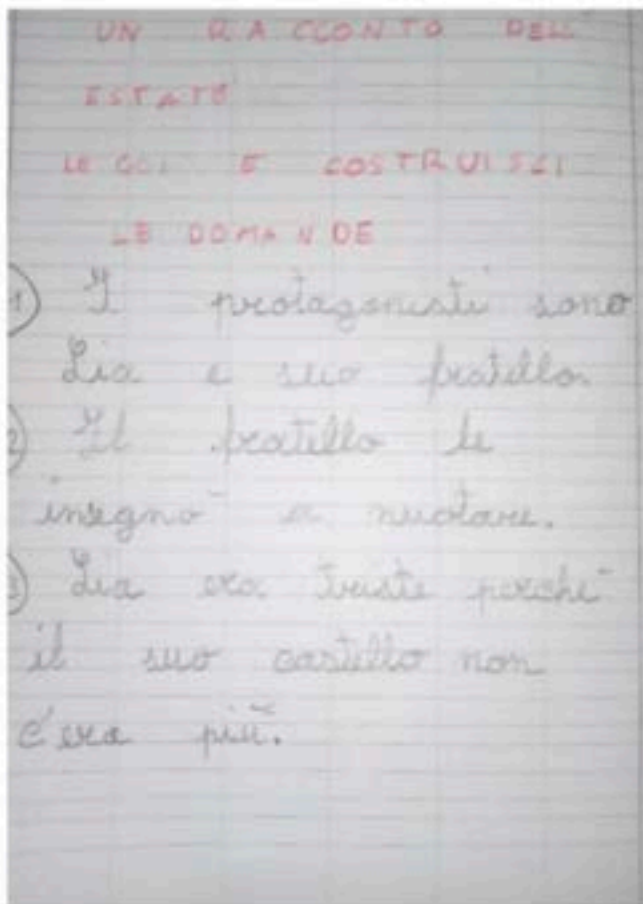 UN RACCONTO DELL'
ESTATE
LEGGI E COSTRUISCI
LE DOMANDE
1) I protagonisti sono
Lia e suo fratello.
2) Il fratello le
insegnò a nuotare.
3) Lia era triste perché
il suo castello non
c'era più.